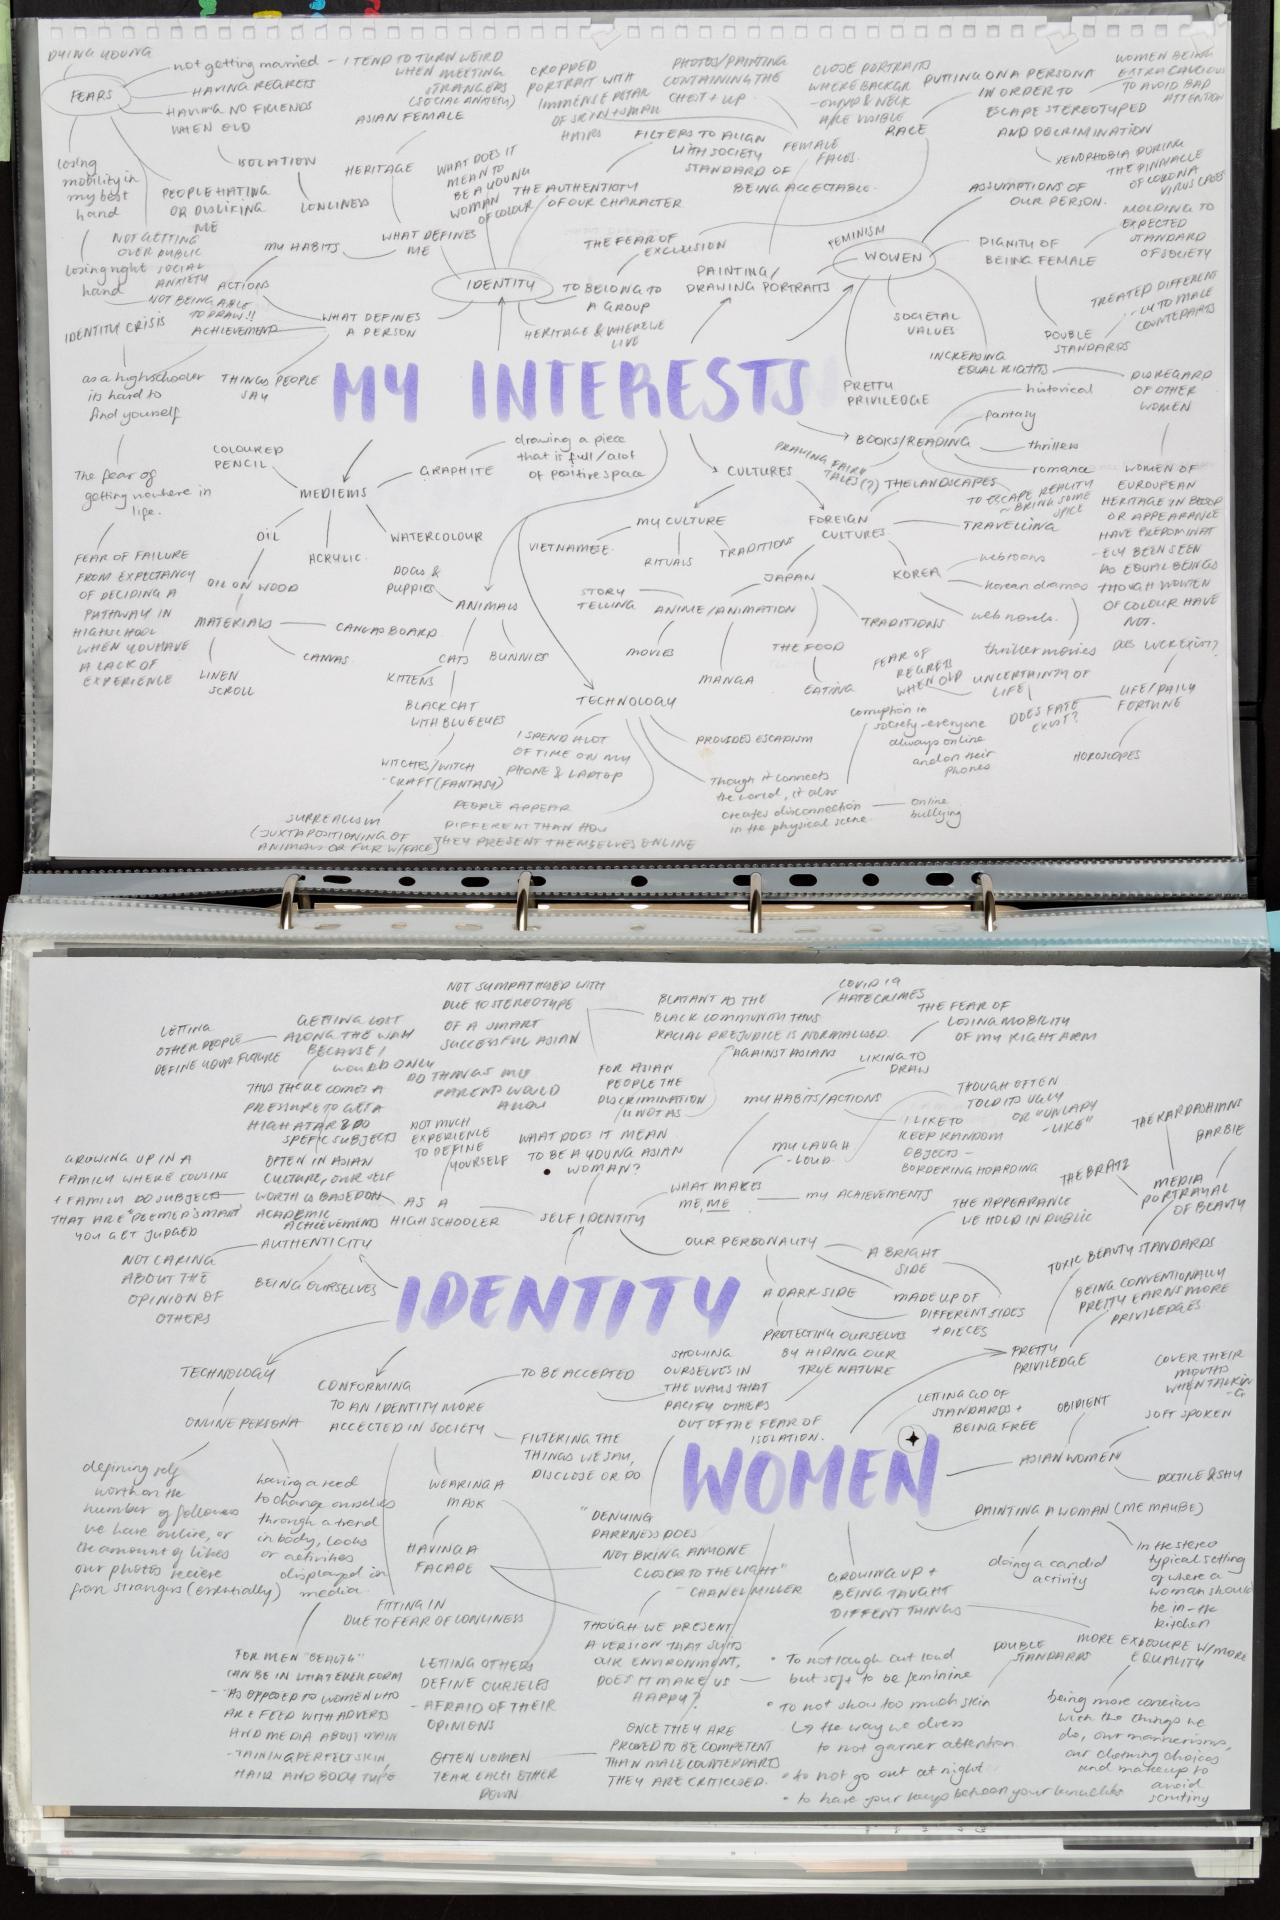 DYING YOUNG
FEARS
not getting married
HAVING REGRETS
HAVING NO FRIENDS
WHEN OLD
ISOLATION
LONLINESS
PEOPLE HATING
OR DISLIKING
ME
losing
mobility in
my best
hand
losing right
hand
NOT GETTING
OVER PUBLIC
SOCIAL
ANXIETY
NOT BEING ABLE
TO DRAW!!
IDENTITY CRISIS
as a highschooler
its hard to
find yourself
The fear of
getting nowhere in
life.
FEAR OF FAILURE
FROM EXPECTANCY
OF DECIDING A
PATHWAY IN
HIGHSCHOOL
WHEN YOU HAVE
A LACK OF
EXPERIENCE
- I TEND TO TURN WEIRD
WHEN MEETING
STRANGERS
(SOCIAL ANXIETY)
ASIAN FEMALE
HERITAGE
WHAT DOES IT
MEAN TO
BE A YOUNG
WOMAN
OF COLOUR
WHAT DEFINES
ME
MY HABITS
ACTIONS
ACHIEVEMENT
THINGS PEOPLE
SAY
WHAT DEFINES
A PERSON
IDENTITY
THE AUTHENTICITY
OF OUR CHARACTER
FILTERS TO ALIGN
WITH SOCIETY
STANDARD OF
BEING ACCEPTABLE.
THE FEAR OF
EXCLUSION
TO BELONG TO
A GROUP
HERITAGE & WHERE WE
LIVE
CROPPED
PORTRAIT WITH
IMMENSE DETAIL
OF SKIN + SMALL
HAIRS
PHOTOS/PAINTING
CONTAINING THE
CHEST + UP
CLOSE PORTRAITS
WHERE BACKGR
-OUND & NECK
ARE VISIBLE
FEMALE
FACES.
PAINTING/
DRAWING PORTRAITS
RACE
PUTTING ON A PERSONA
IN ORDER TO
ESCAPE STEREOTYPED
AND DISCRIMINATION
WOMEN BEING
EXTRA CAUTIOUS
TO AVOID BAD
ATTENTION
XENOPHOBIA DURING
THE PINNACLE
OF CORONA
VIRUS CASES
ASSUMPTIONS OF
OUR PERSON.
FEMINISM
WOMEN
DIGNITY OF
BEING FEMALE
MOLDING TO
EXPECTED
STANDARD
OF SOCIETY
TREATED DIFFERENT
-LY TO MALE
COUNTERPARTS
DOUBLE
STANDARDS
SOCIETAL
VALUES
INCREASING
EQUAL RIGHTS
DISREGARD
OF OTHER
WOMEN
WOMEN OF
EUROPEAN
HERITAGE IN BLOOD
OR APPEARANCE
HAVE PREDOMINAT
-ELY BEEN SEEN
AS EQUAL BEINGS
THOUGH WOMEN
OF COLOUR HAVE
NOT.
PRETTY
PRIVILEDGE
MY INTERESTS
COLOURED
PENCIL
MEDIEMS
GRAPHITE
drawing a piece
that is full/alot
of positive space
OIL
ACRYLIC.
WATERCOLOUR
OIL ON WOOD
MATERIALS
CANVAS BOARD
CANVAS.
LINEN
SCROLL
DOGS &
PUPPIES
ANIMALS
CATS
BUNNIES
KITTENS
BLACK CAT
WITH BLUE EYES
WITCHES/WITCH
-CRAFT (FANTASY)
SURREALISM
(JUXTAPOSITIONING OF
ANIMALS OR FUR W/FACE)
CULTURES
MY CULTURE
VIETNAMESE.
RITUALS
TRADITIONS
FOREIGN
CULTURES
JAPAN
STORY
TELLING
ANIME/ANIMATION
MOVIES
MANGA
THE FOOD
EATING
TRADITIONS
KOREA
webtoons
korean dramas
web novels.
thriller movies
THE LANDSCAPES
TRAVELLING
BOOKS/READING
historical
fantasy
thrillers
romance
DRAWING FAIRY
TALES (?)
TO ESCAPE REALITY
~ BRING SOME
SPICE
DOES LUCK EXIST?
LIFE/DAILY
FORTUNE
HOROSCOPES
DOES FATE
EXIST?
UNCERTAINTY OF
LIFE
FEAR OF
REGRETS
WHEN OLD
TECHNOLOGY
PROVIDES ESCAPISM
I SPEND A LOT
OF TIME ON MY
PHONE & LAPTOP
PEOPLE APPEAR
DIFFERENT THAN HOW
THEY PRESENT THEMSELVES ONLINE
Though it connects
the world, it also
creates disconnection
in the physical scene
online
bullying
corruption in
society-everyone
always online
and on their
phones
LETTING
OTHER PEOPLE
DEFINE YOUR FUTURE
GETTING LOST
ALONG THE WAY
BECAUSE I
WOULD ONLY
DO THINGS MY
PARENTS WOULD
ALLOW
THUS THERE COMES A
PRESSURE TO GET A
HIGH ATAR & DO
SPEFIC SUBJECTS
GROWING UP IN A
FAMILY WHERE COUSINS
+ FAMILY DO SUBJECTS
THAT ARE "DEEMED SMART"
YOU GET JUDGED
OFTEN IN ASIAN
CULTURE, OUR SELF
WORTH IS BASED ON
ACADEMIC
ACHIEVEMENTS
NOT MUCH
EXPERIENCE
TO DEFINE
YOURSELF
AS A
HIGHSCHOOLER
NOT SYMPATHISED WITH
DUE TO STEREOTYPE
OF A SMART
SUCCESSFUL ASIAN
FOR ASIAN
PEOPLE THE
DISCRIMINATION
IS NOT AS
BLATANT AS THE
BLACK COMMUNITY THUS
RACIAL PREJUDICE IS NORMALISED.
AGAINST ASIANS
COVID 19
HATECRIMES
WHAT DOES IT MEAN
TO BE A YOUNG ASIAN
WOMAN?
SELF IDENTITY
WHAT MAKES
ME, ME
MY HABITS/ACTIONS
LIKING TO
DRAW
THE FEAR OF
LOSING MOBILITY
OF MY RIGHT ARM
MY LAUGH
-LOUD.
THOUGH OFTEN
TOLD ITS UGLY
OR "UNLADY
-LIKE"
I LIKE TO
KEEP RANDOM
OBJECTS -
BORDERING HOARDING
MY ACHIEVEMENTS
OUR PERSONALITY
A BRIGHT
SIDE
THE APPEARANCE
WE HOLD IN PUBLIC
A DARK SIDE
MADE UP OF
DIFFERENT SIDES
+ PIECES
PROTECTING OURSELVES
BY HIDING OUR
TRUE NATURE
THE KARDASHIANS
BARBIE
THE BRATZ
MEDIA
PORTRAYAL
OF BEAUTY
TOXIC BEAUTY STANDARDS
BEING CONVENTIONALLY
PRETTY EARNS MORE
PRIVILEDGES
PRETTY
PRIVILEDGE
IDENTITY
AUTHENTICITY
BEING OURSELVES
NOT CARING
ABOUT THE
OPINION OF
OTHERS
TECHNOLOGY
ONLINE PERSONA
defining self
worth on the
number of followers
we have online, or
the amount of likes
our photos recieve
from strangers (essentially)
having a need
to change ourselves
through a trend
in body, looks
or activities
displayed in
media.
FOR MEN "BEAUTY"
CAN BE IN WHATEVER FORM
- AS OPPOSED TO WOMEN WHO
ARE FEED WITH ADVERTS
AND MEDIA ABOUT MAIN
-TAINING PERFECT SKIN,
HAIR AND BODY TYPE
CONFORMING
TO AN IDENTITY MORE
ACCECTED IN SOCIETY
TO BE ACCEPTED
SHOWING
OURSELVES IN
THE WAYS THAT
PACIFY OTHERS
OUT OF THE FEAR OF
ISOLATION.
FILTERING THE
THINGS WE SAY,
DISCLOSE OR DO
WEARING A
MASK
HAVING A
FACADE
FITTING IN
DUE TO FEAR OF LONLINESS
LETTING OTHERS
DEFINE OURSELVES
- AFRAID OF THEIR
OPINIONS
OFTEN WOMEN
TEAR EACH OTHER
DOWN
"DENYING
DARKNESS DOES
NOT BRING ANYONE
CLOSER TO THE LIGHT"
- CHANEL MILLER
THOUGH WE PRESENT
A VERSION THAT SUITS
OUR ENVIRONMENT,
DOES IT MAKE US
HAPPY?
ONCE THEY ARE
PROVED TO BE COMPETENT
THAN MALE COUNTERPARTS
THEY ARE CRITICISED.
WOMEN
LETTING GO OF
STANDARDS +
BEING FREE
ASIAN WOMEN
OBIDIENT
SOFT SPOKEN
COVER THEIR
MOUTHS
WHEN TALKIN
-G
DOCTILE & SHY
PAINTING A WOMAN (ME MAYBE)
doing a candid
activity
in the stereo
typical setting
of where a
woman should
be in - the
kitchen
GROWING UP +
BEING TAUGHT
DIFFENT THINGS
• To not laugh out loud
but soft to be feminine
• to not show too much skin
↳ the way we dress
to not garner attention
• to not go out at night
• to have your keys between your knuckles
DOUBLE
STANDARDS
MORE EXPOSURE W/MORE
EQUALITY
being more concious
with the things we
do, our mannerisms,
our clothing choices
and makeup to
avoid
scrutiny